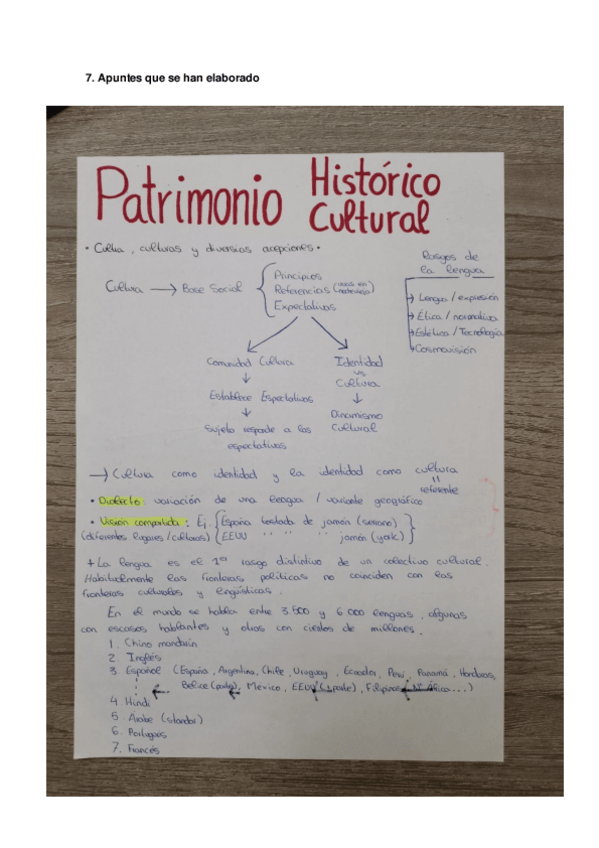 7. Apuntes que se han elaborado
Patrimonio Histórico Cultural
• Cultura, culturas y diversas acepciones •
Cultura → Base Social { Principios
Referencias (
Expectativas
Rasgos de
la lengua
→ Lengua / expresión
→ Ética / normativa
→ Estética / Tecnología
→ Cosmovisión
Comunidad Cultura
↓
Establece Espectativas
↓
Sujeto responde a las
espectativas
Identidad
vs
Cultura
↓
Dinamismo
Cultural
→ Cultura como identidad y la identidad como cultura
"
referente
• Dialecto: variación de una lengua / variante geográfica
• Visión compartida: Ej. { España tostada de jamón (serrano) }
(diferentes lugares / culturas) { EEUU " " " jamón (york) }
+ La lengua es el 1º rasgo distintivo de un colectivo cultural.
Habitualmente las fronteras políticas no coinciden con las
fronteras culturales y lingüísticas.
En el mundo se habla entre 3.500 y 6.000 lenguas, algunas
con escasos hablantes y otros con cientos de millones.
1. Chino mandarín
2. Inglés
3. Español (España, Argentina, Chile, Uruguay, Ecuador, Perú, Panamá, Honduras,
Belice (parte), Mexico, EEUU (parte), Filipinas, Nº África ....)
4. Hindi
5. Árabe (standar)
6. Portugues
7. Francés